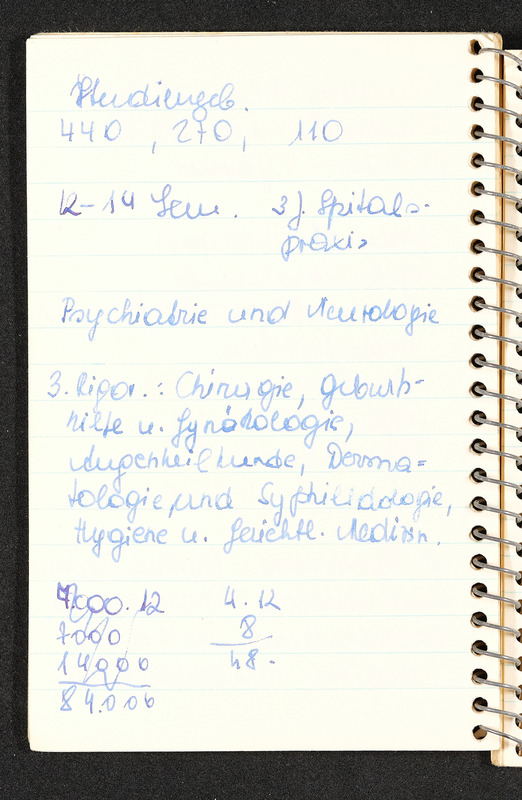 Studiengeb.
440 , 270, 110
12-14 Sem. 3 J. Spitals-
praxis
Psychiatrie und Neurologie
3. Rigor.: Chirurgie, Geburts-
hilfe u. Gynäkologie,
Augenheilkunde, Derma=
tologie, und Syphilidologie,
Hygiene u. Gerichtl. Medizin.
7000. 12 4. 12
7000 8
14000 48.
84.000